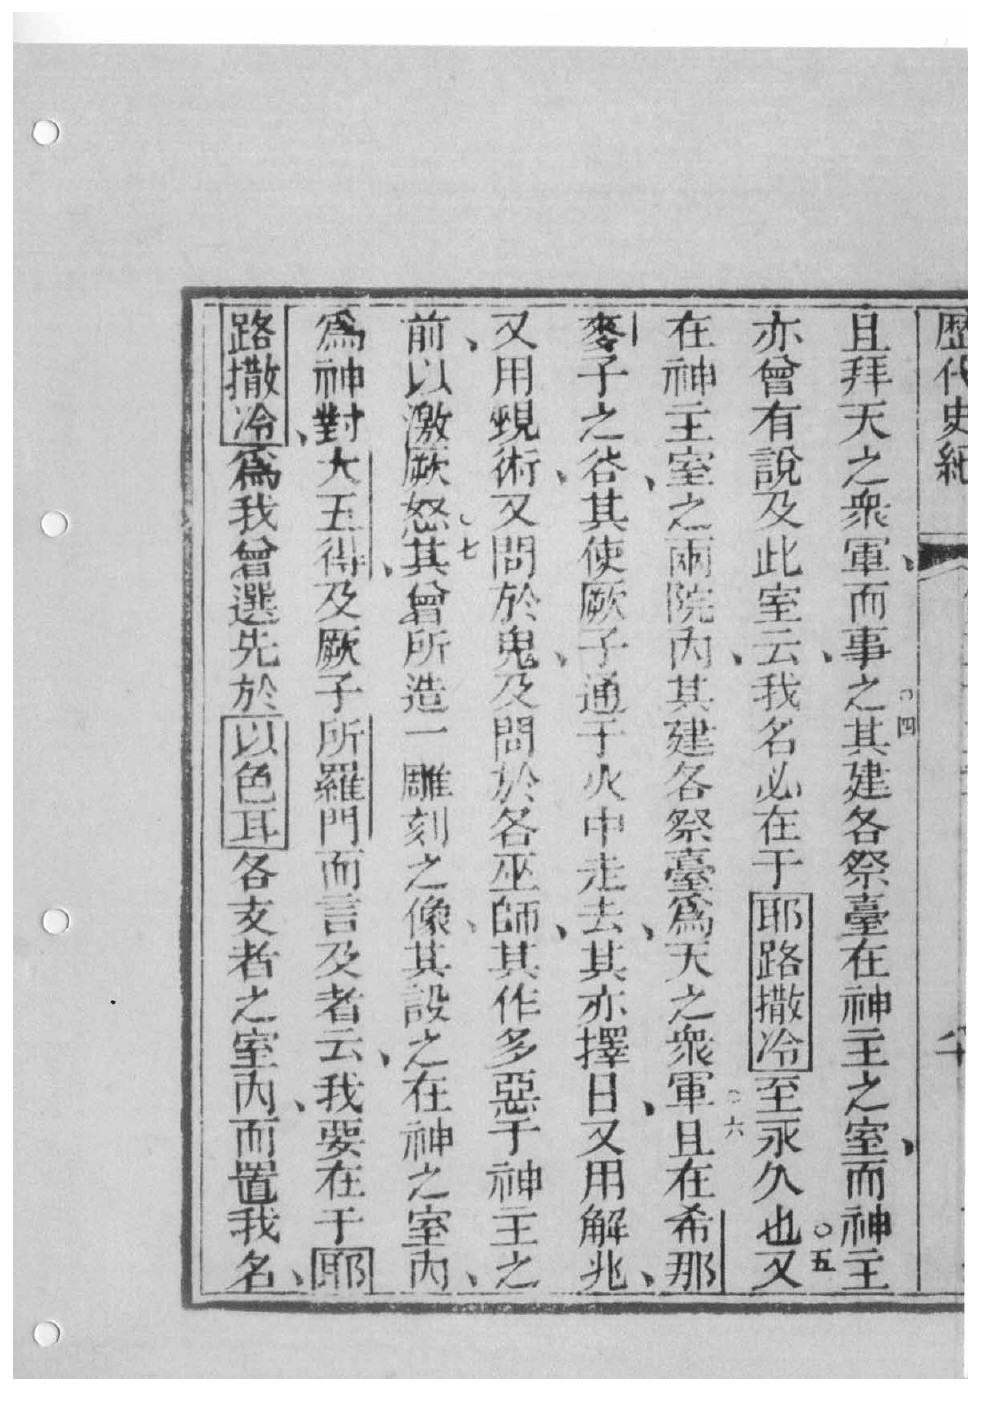 歷代史紀
且拜天之衆軍、而事之○四其建各祭臺在神主之室、而神主
亦曾有說及此室云、我名必在于耶路撒冷至永久也○五又
在神主室之兩院內、其建各祭臺爲天之衆軍○六且在希那
麥子之谷、其使厥子通于火中走去、其亦擇日、又用解兆、
又用蜆術、又問於鬼、及問於各巫師、其作多惡于神主之
前、以激厥怒○七其曾所造一雕刻之像、其設之在神之室內、
爲神對大五得、及厥子所羅門而言及者云、我要在于耶
路撒冷、爲我曾選先於以色耳各支者之室內、而置我名、